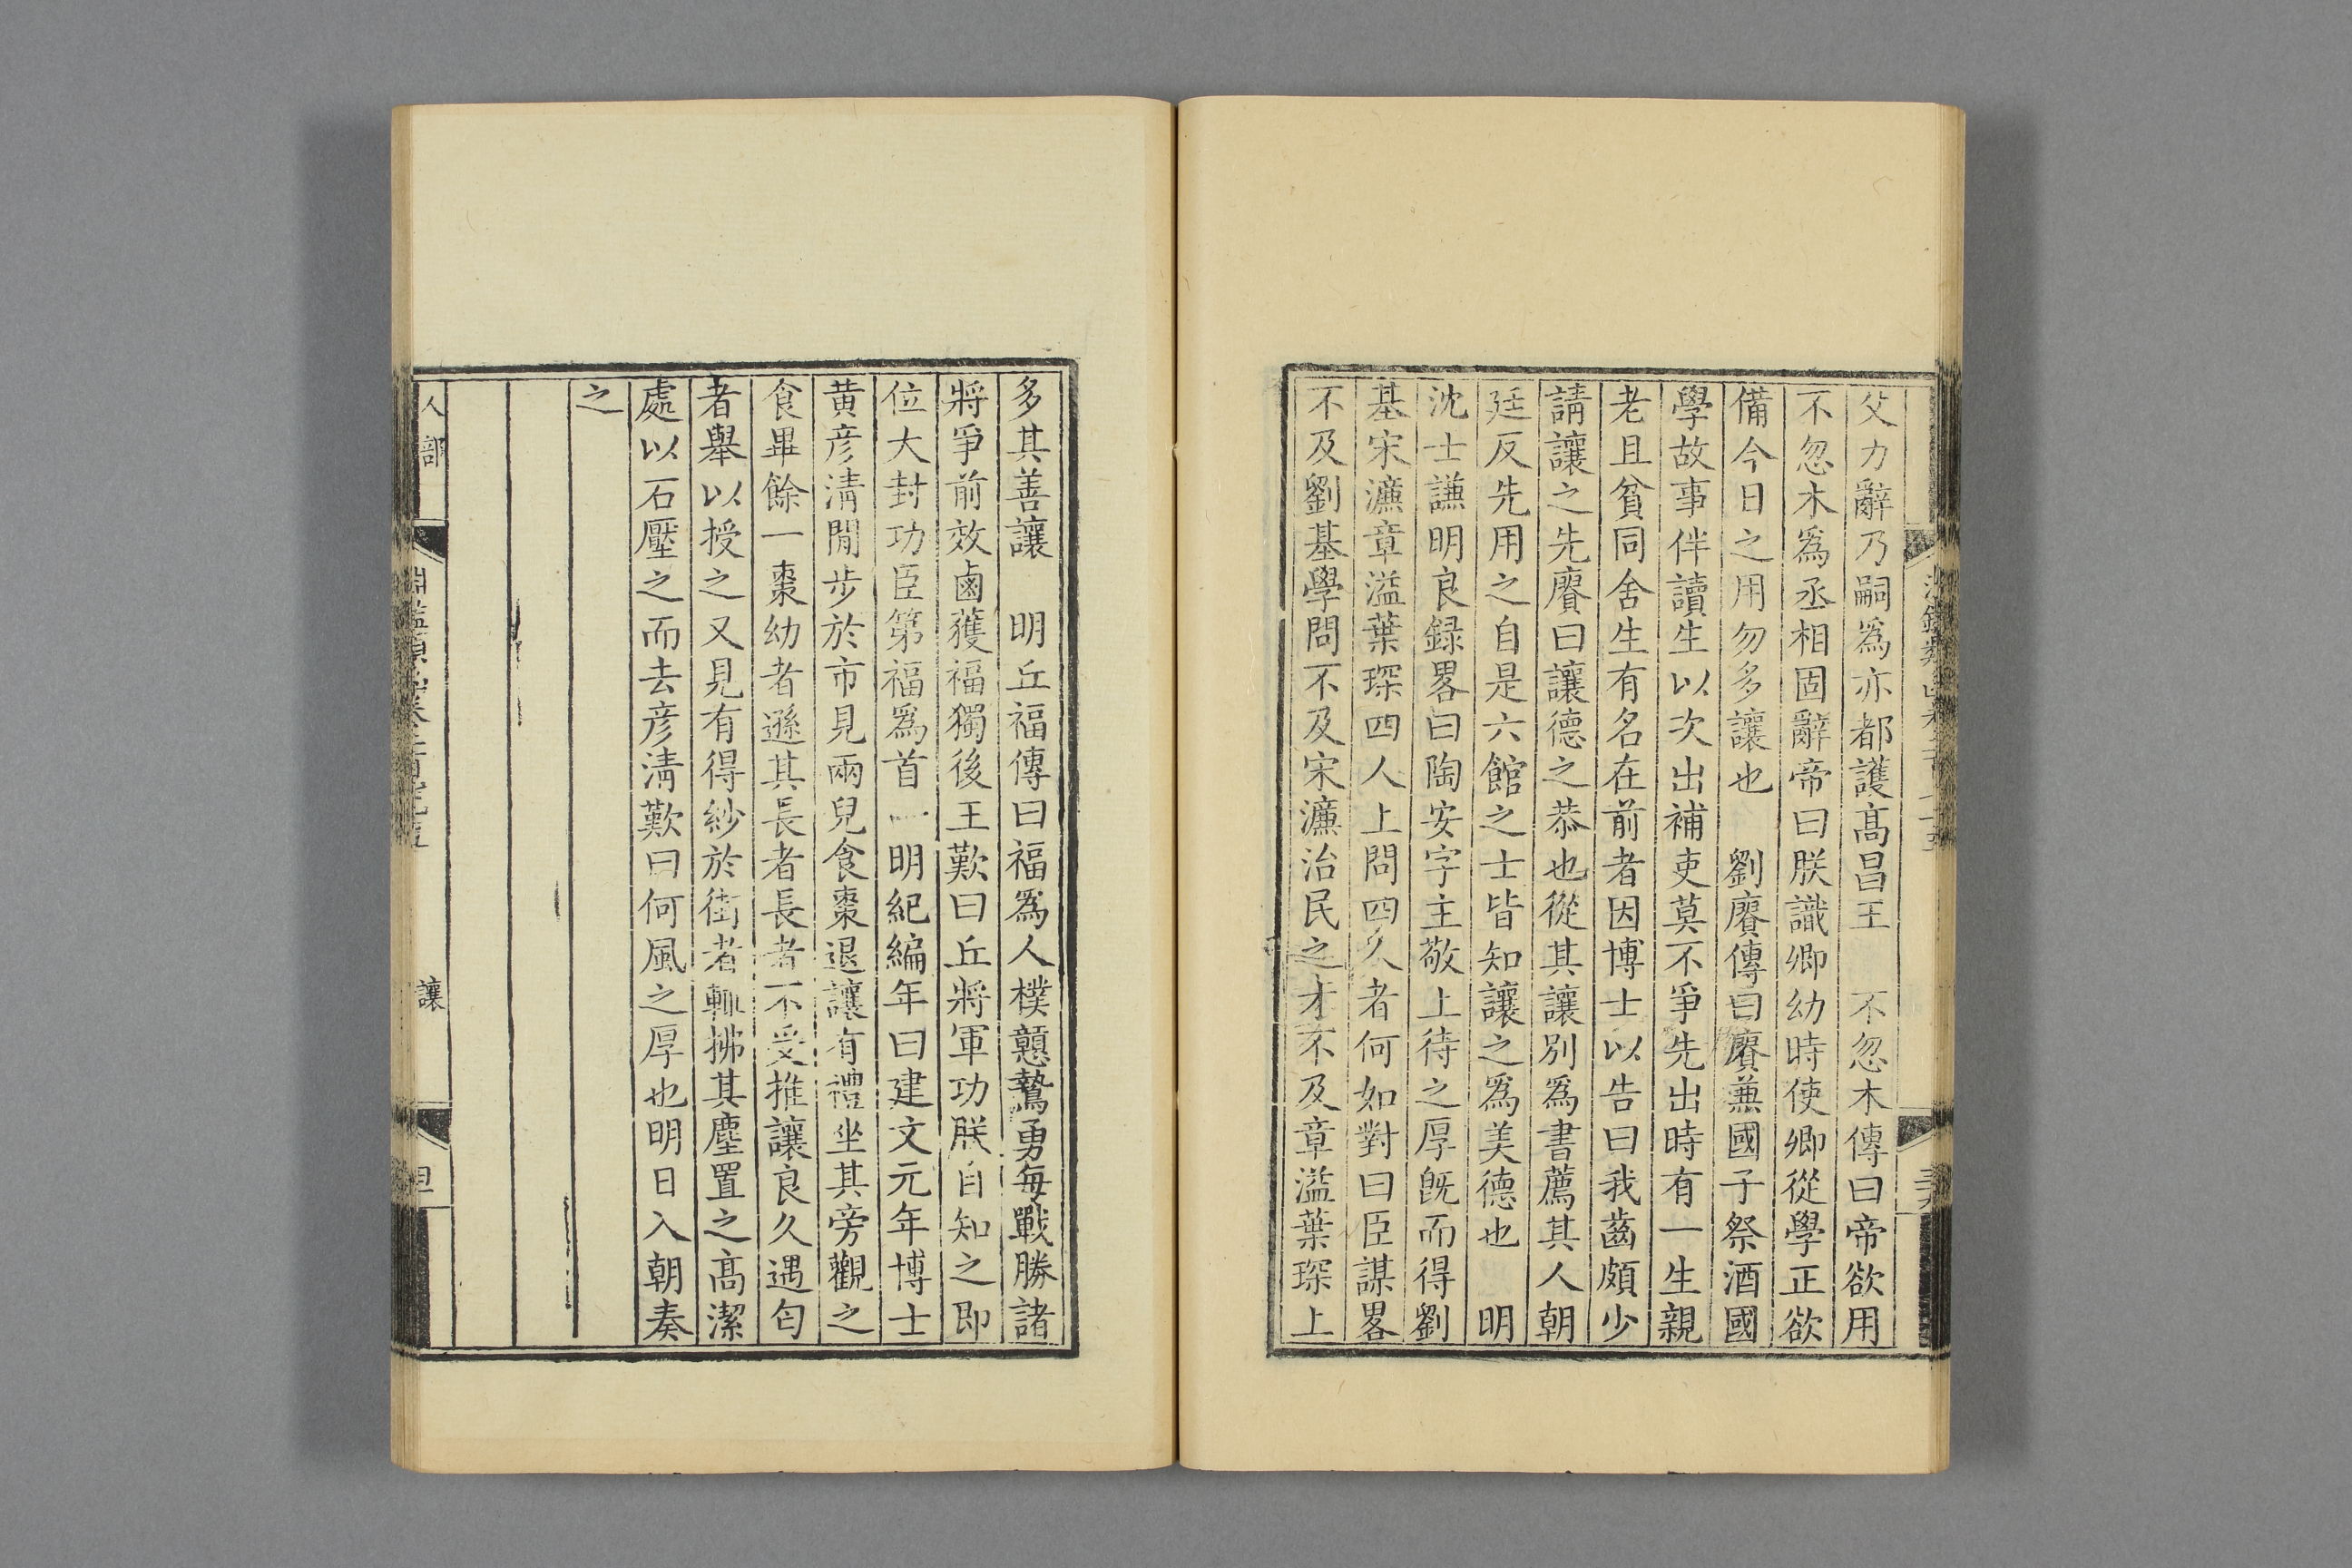 父力辭乃嗣爲亦都護髙昌王　不忽木傳曰帝欲用
不忽木爲丞相固辭帝曰朕識卿幼時使卿從學正欲
備今日之用勿多讓也　劉賡傳曰賡兼國子祭酒國
學故事伴讀生以次出補吏莫不爭先出時有一生親
老且貧同舍生有名在前者因博士以告曰我齒頗少
請讓之先賡曰讓德之恭也從其讓别爲書薦其人朝
廷反先用之自是六館之士皆知讓之爲美德也　明
沈士謙明良録畧曰陶安字主敬上待之厚旣而得劉
基宋濂章溢葉琛四人上問四人者何如對曰臣謀畧
不及劉基學問不及宋濂治民之才不及章溢葉琛上
多其善讓　明丘福傳曰福爲人樸戇鷙勇每戰勝諸
將爭前效鹵獲福獨後王歎曰丘將軍功朕自知之即
位大封功臣第福爲首　明紀編年曰建文元年博士
黄彦淸閒步於市見兩兒食棗退讓有禮坐其旁觀之
食畢餘一棗幼者遜其長者長者不受推讓良久遇匄
者舉以授之又見有得紗於街者輒拂其塵置之髙潔
處以石壓之而去彦淸歎曰何風之厚也明日入朝奏
之
人部
淵鑑類函卷
讓